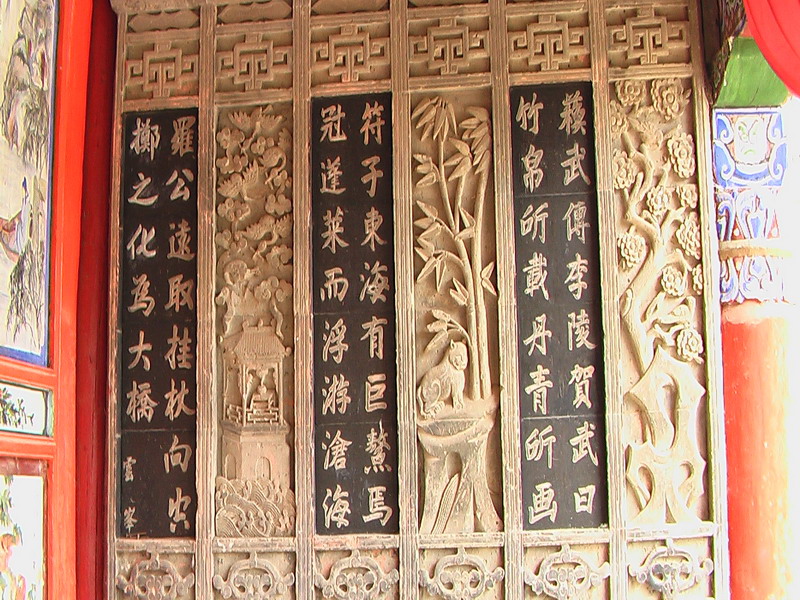 蘓武傳李陵賀武曰
竹帛所載丹青所画
符子東海有巨鰲焉
冠蓬萊而浮游滄海
羅公遠取拄杖向空
擲之化為大橋
雲峯